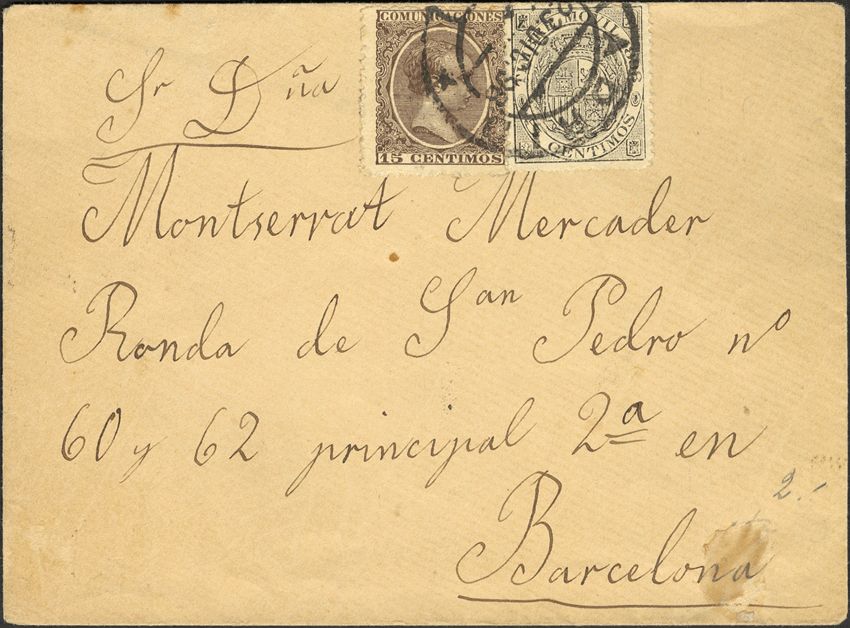 COMUNICACIONES
15 CENTIMOS
MOVIL
CENTIMOS
Sr Dña
Montserrat Mercader
Ronda de San Pedro nº
60 y 62 principal 2ª en
Barcelona
2.-